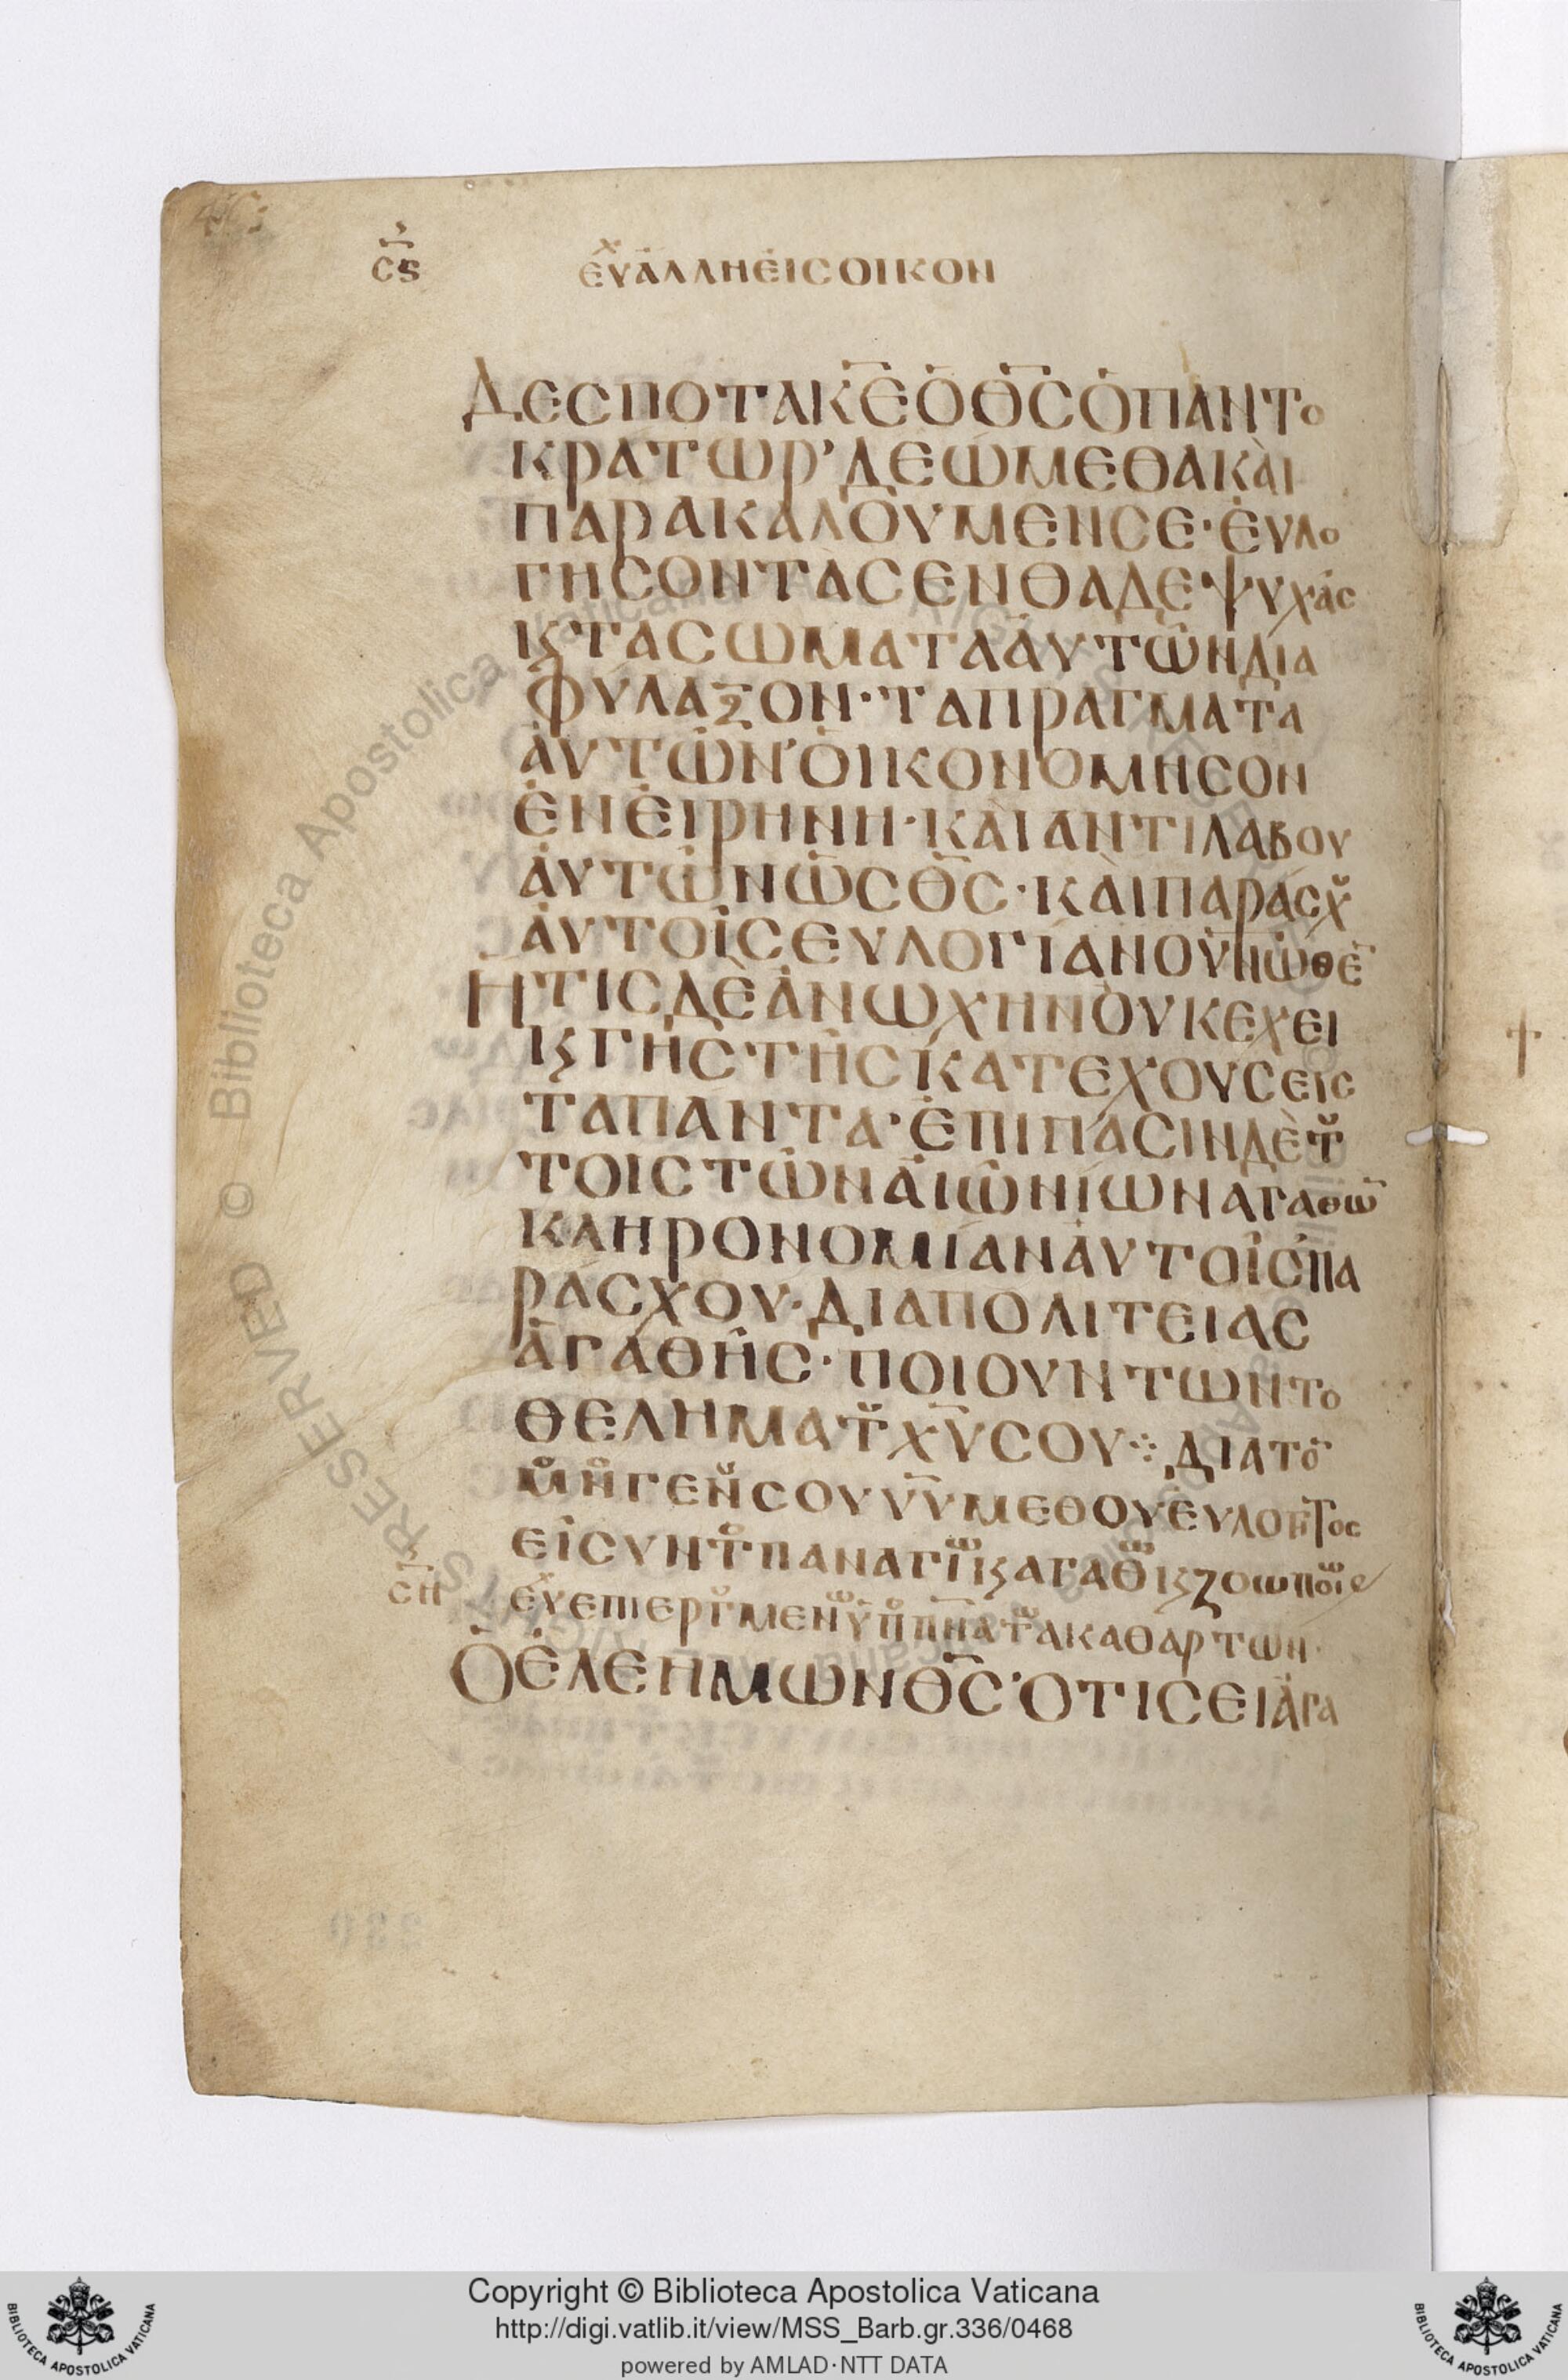 Ϲϛ ΕΥΧ ΑΛΛΗ ΕΙϹ ΟΙΚΟΝ
ΔΕϹΠΟΤΑ Κ̅Ε̅ Ο Θ̅Ϲ̅ Ο ΠΑΝΤΟ
ΚΡΑΤΩΡ’ ΔΕΩΜΕΘΑ ΚΑΙ
ΠΑΡΑΚΑΛΟΥΜΕΝ ϹΕ· ΕΥΛΟ
ΓΗϹΟΝ ΤΑϹ ΕΝΘΑΔΕ ΨΥΧΑϹ
Ϗ ΤΑ ϹΩΜΑΤΑ ΑΥΤΩΝ ΔΙΑ
ΦΥΛΑΞΟΝ· ΤΑ ΠΡΑΓΜΑΤΑ
ΑΥΤΩΝ ΟΙΚΟΝΟΜΗϹΟΝ
ΕΝ ΕΙΡΗΝΗ· ΚΑΙ ΑΝΤΙΛΑΒΟΥ
ΑΥΤΩΝ ΩϹ Θ̅Ϲ̅· ΚΑΙ ΠΑΡΑϹΧȢ
ΑΥΤΟΙϹ ΕΥΛΟΓΙΑΝ ΟΥ̅Ν̅ΩΘΕ̅
ΗΤΙϹ ΔΕ ΑΝΩΧΗΝ ΟΥΚ ΕΧΕΙ
Ϗ ΓΗϹ ΤΗϹ ΚΑΤΕΧΟΥϹΕΙϹ
ΤΑ ΠΑΝΤΑ· ΕΠΙ ΠΑϹΙΝ ΔΕ ΤȢ
ΤΟΙϹ ΤΩΝ ΑΙΩΝΙΩΝ ΑΓΑΘΩ̅
ΚΛΗΡΟΝΟΜΙΑΝ ΑΥΤΟΙϹ ΠΑ
ΡΑϹΧΟΥ· ΔΙΑ ΠΟΛΙΤΕΙΑϹ
ΑΓΑΘΗϹ· ΠΟΙΟΥΝΤΩΝ ΤΟ
ΘΕΛΗΜΑ ΤȢ Χ̅Υ̅ ϹΟΥ ⁘ ΔΙΑ ΤΟ
ΜΟΝΟΓΕΝȢϹ ϹΟΥ Υ̅Υ̅ ΜΕΘ ΟΥ ΕΥΛΟΓΗΤΟϹ
ΕΙ ϹΥΝ ΤΟ ΠΑΝΑΓΙΩ Ϗ ΑΓΑΘΩ Ϗ ΖΟΩΠΟΙΩ
ϹΠ ΕΥΧ ΕΠΙ ΕΡΓΟΜΕΝΩ ΥΠΟ Π̅Ν̅ΑΤΩ ΑΚΑΘΑΡΤΩΝ·
Ο ΕΛΕΗΜΩΝ Θ̅Ϲ̅ Ο ΤΙϹ ΕΙ ΑΓΑ
RESERVED © Biblioteca Apostolica Vaticana
Copyright © Biblioteca Apostolica Vaticana
http://digi.vatlib.it/view/MSS_Barb.gr.336/0468
powered by AMLAD·NTT DATA
BIBLIOTECA APOSTOLICA VATICANA
BIBLIOTECA APOSTOLICA VATICANA